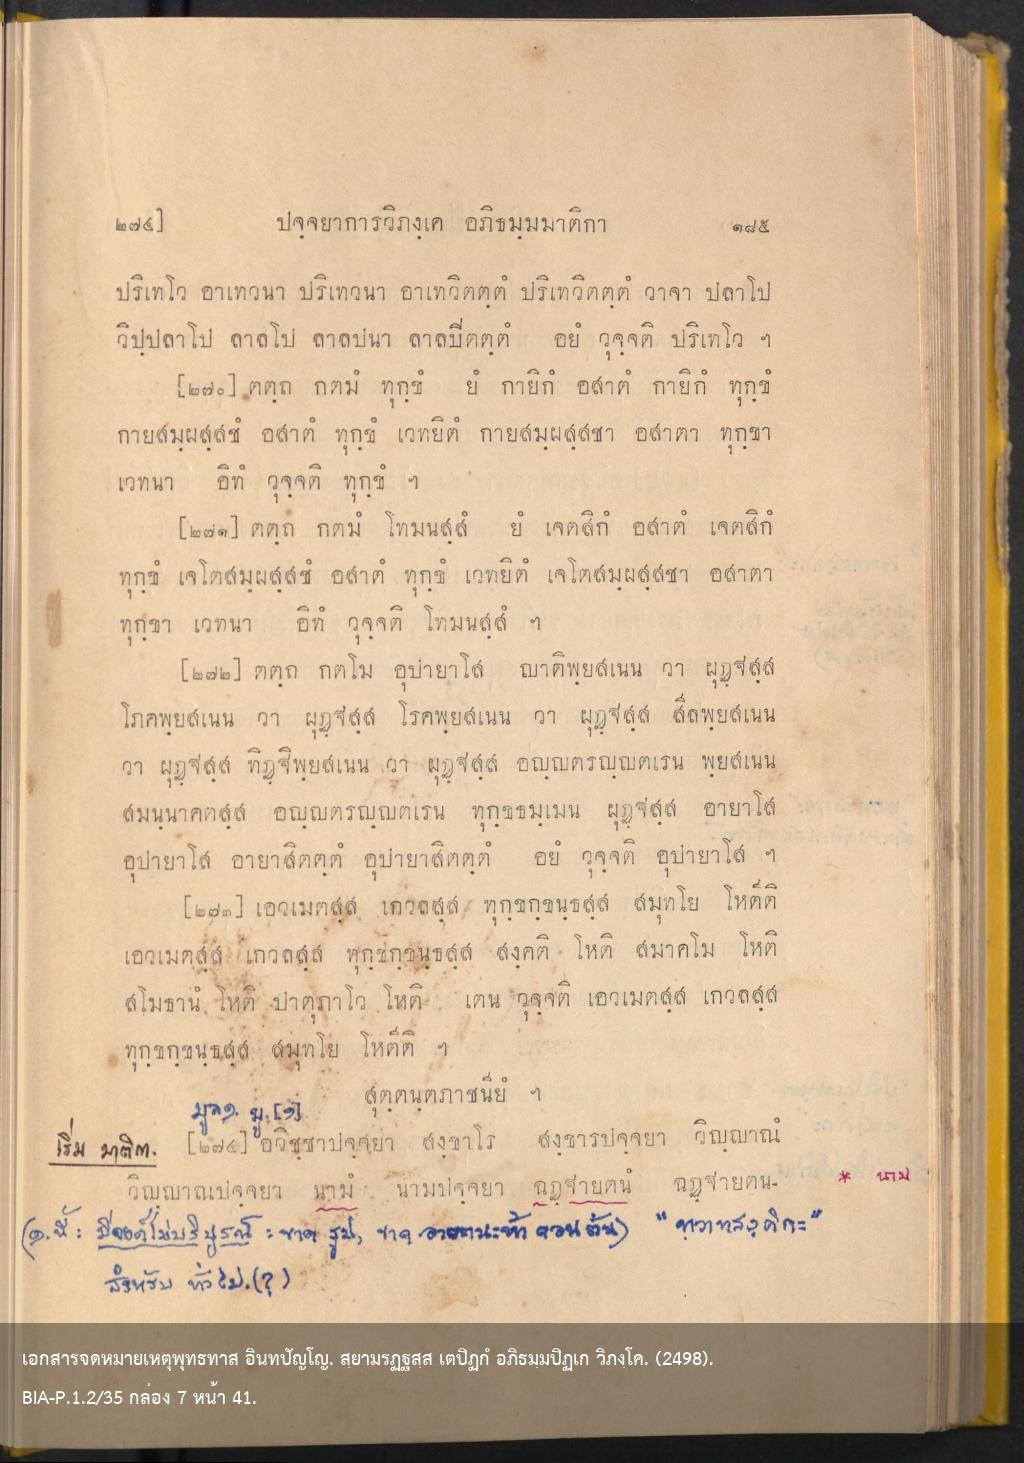 ๒๗๔] ปจฺจยาการวิภงฺเค อภิธมฺมมาติกา ๑๘๕
ปริเทโว อาเทวนา ปริเทวนา อาเทวิตตฺตํ ปริเทวิตตฺตํ วาจา ปลาโป
วิปฺปลาโป ลาลโป ลาลปนา ลาลปิตตฺตํ อยํ วุจฺจติ ปริเทโว ฯ
[๒๗๐] ตตฺถ กตมํ ทุกฺขํ ยํ กายิกํ อสาตํ กายิกํ ทุกฺขํ
กายสมฺผสฺสชํ อสาตํ ทุกฺขํ เวทยิตํ กายสมฺผสฺสชา อสาตา ทุกฺขา
เวทนา อิทํ วุจฺจติ ทุกฺขํ ฯ
[๒๗๑] ตตฺถ กตมํ โทมนสฺสํ ยํ เจตสิกํ อสาตํ เจตสิกํ
ทุกฺขํ เจโตสมฺผสฺสชํ อสาตํ ทุกฺขํ เวทยิตํ เจโตสมฺผสฺสชา อสาตา
ทุกฺขา เวทนา อิทํ วุจฺจติ โทมนสฺสํ ฯ
[๒๗๒] ตตฺถ กตโม อุปายาโส ญาติพฺยสเนน วา ผุฏฺฐสฺส
โภคพฺยสเนน วา ผุฏฺฐสฺส โรคพฺยสเนน วา ผุฏฺฐสฺส สีลพฺยสเนน
วา ผุฏฺฐสฺส ทิฏฺฐิพฺยสเนน วา ผุฏฺฐสฺส อญฺญตรญฺญตเรน พฺยสเนน
สมนฺนาคตสฺส อญฺญตรญฺญตเรน ทุกฺขธมฺเมน ผุฏฺฐสฺส อายาโส
อุปายาโส อายาสิตตฺตํ อุปายาสิตตฺตํ อยํ วุจฺจติ อุปายาโส ฯ
[๒๗๓] เอวเมตสฺส เกวลสฺส ทุกฺขกฺขนฺธสฺส สมุทโย โหตีติ
เอวเมตสฺส เกวลสฺส ทุกฺขกฺขนฺธสฺส สงฺคติ โหติ สมาคโม โหติ
สโมธานํ โหติ ปาตุภาโว โหติ เตน วุจฺจติ เอวเมตสฺส เกวลสฺส
ทุกฺขกฺขนฺธสฺส สมุทโย โหตีติ ฯ
สุตฺตนฺตภาชนียํ ฯ
มูล๑. มู.[๑]
เริ่ม มาติกา. [๒๗๔] อวิชฺชาปจฺจยา สงฺขาโร สงฺขารปจฺจยา วิญฺญาณํ
วิญฺญาณปจฺจยา นามํ นามปจฺจยา ฉฏฺฐายตนํ ฉฏฺฐายตน- * นาม
(๑. นี้ : มีองค์ไม่บริบูรณ์ : ขาด รูป, ขาด อายตนะห้า ตอนต้น)
สำหรับ ทั่วไป.(?)
เอกสารจดหมายเหตุพุทธทาส อินทปัญโญ. สฺยามรฏฺฐสฺส เตปิฏกํ อภิธมฺมปิฏเก วิภงฺโค. (2498).
BIA-P.1.2/35 กล่อง 7 หน้า 41.